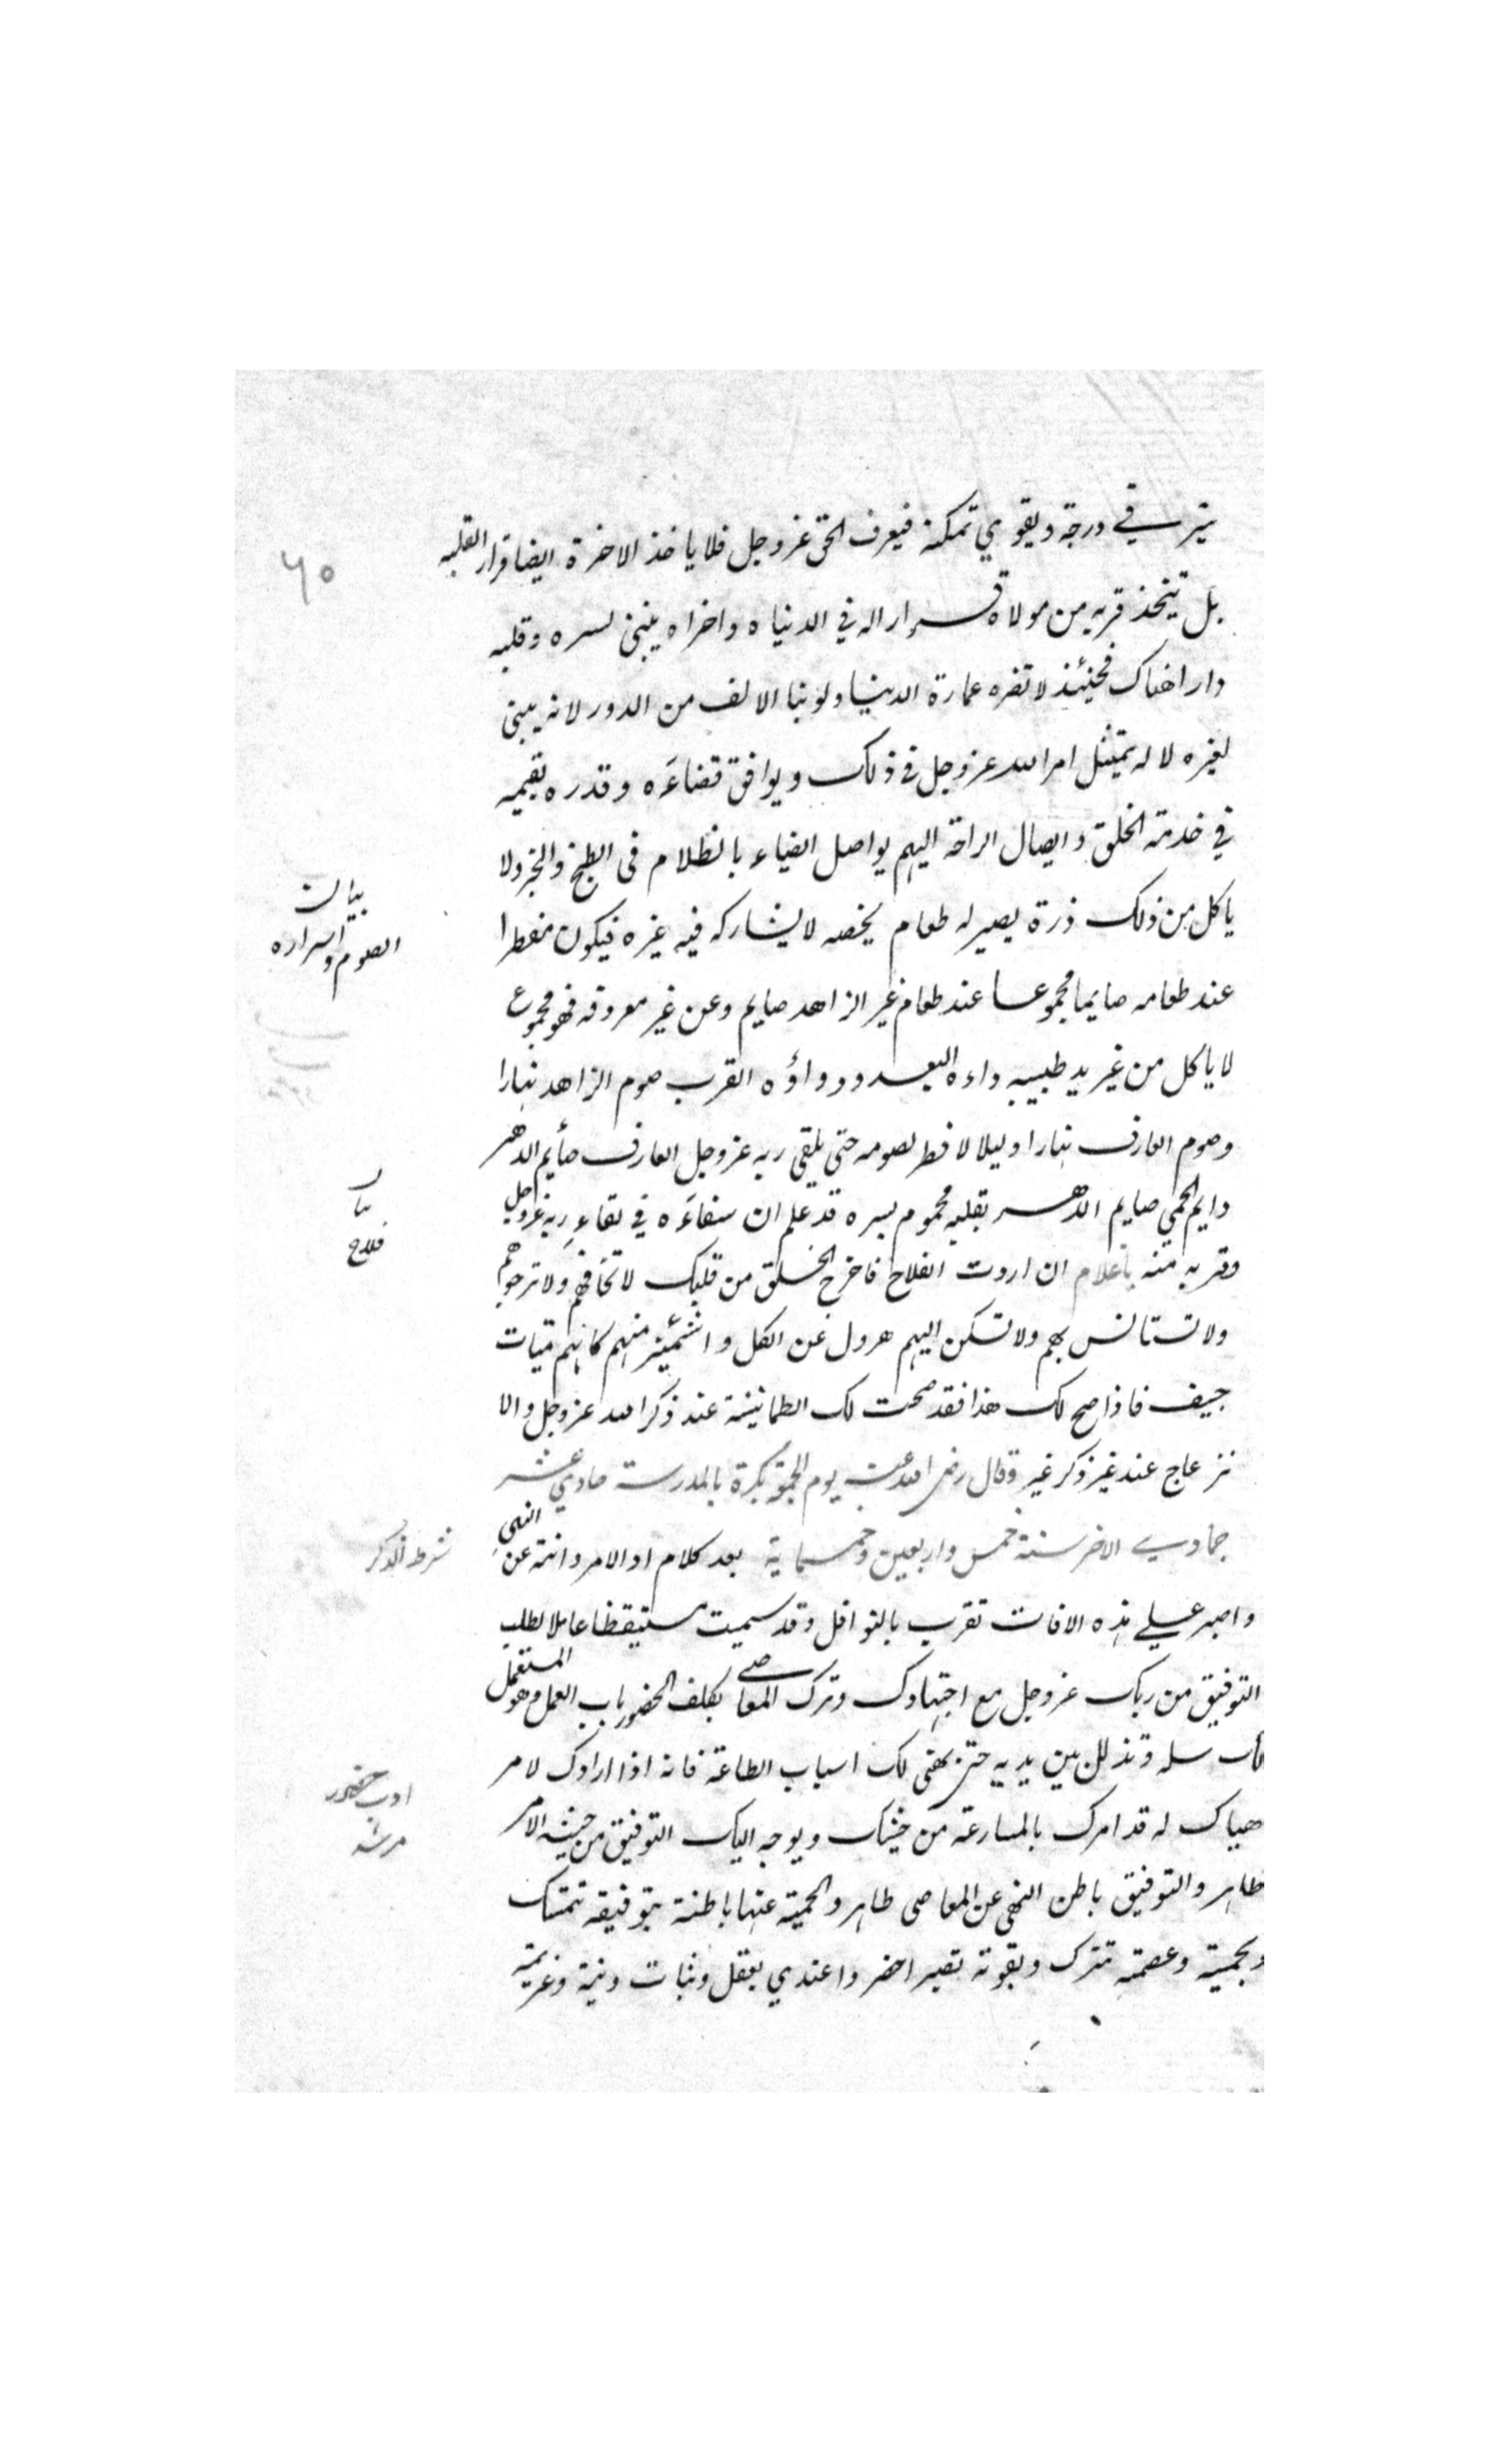 يترقي في درجة ويقوي تمكنه فيعرف الحق عز وجل فلا ياخذ الاخرة ايضا قرار القلبه
٦٥
بل يتخذ قربه من مولاه قرارا له في الدنياه واخراه يبني لسره وقلبه
دارا هناك فحينئذ لا تضره عمارة الدنيا ولو بنا الالف من الدور لانه يبني
لغيره لا له يمتثل امر الله عز وجل في ذلك ويوافق قضاءه وقدره يقيمه
في خدمة الخلق وايصال الراحة اليهم يواصل الضياء بالظلام في الطبخ والخبز ولا
ياكل من ذلك ذرة يصير له طعام يخصه لا يشاركه فيه غيره فيكون مفطرا
بيان
الصوم واسراره
عند طعامه صايما مجموعا عند طعام غير الزاهد صايم وعن غير معروفه فهو مجموع
لا ياكل من غير يد طبيبه داءه البعد ودواؤه القرب صوم الزاهد نهارا
وصوم العارف نهارا وليلا لا فطر لصومه حتى يلقى ربه عز وجل العارف صايم الدهر
دايم الحمي صايم الدهر بقلبه محموم بسره قد علم ان شفاءه في لقاء ربه عز وجل
بيان
فلاح
وقربه منه ياغلام ان اردت الفلاح فاخرج الخلق من قلبك لا تخافهم ولا ترجوهم
ولا تستانس بهم ولا تسكن اليهم هرول عن الكل واشمئز منهم كانهم ميتات
جيف فاذا صح لك هذا فقد صحت لك الطمانينة عند ذكر الله عز وجل والا
نزعاج عند غير ذكر غيره وقال رضي الله عنه يوم الجمعة بكرة بالمدرسة حادي عشر
جمادي الاخر سنة خمس واربعين وخمسماية بعد كلام اد الامر وانته عن النهي
شرط الذكر
واصبر علي هذه الافات تقرب بالنوافل وقد سميت مستيقظا عاملا لطلب
التوفيق من ربك عز وجل مع اجتهادك وترك المعاصي بكلف الحضور باب العمل وهو المستعمل
لك سله وتذلل بين يديه حتى يهئ لك اسباب الطاعة فانه اذا ارادك لامر
ادب حضور
مرشد
هياك له قد امرك بالمسارعة من حيثك ويوجه اليك التوفيق من حيثه الامر
ظاهر والتوفيق باطن النهي عن المعاصي ظاهر والحمية عنها باطنة بتوفيقه تتمسك
وبحميته وعصمته تترك وبقوته تصبر احضروا عندي بعقل وثبات ونية وعزيمة